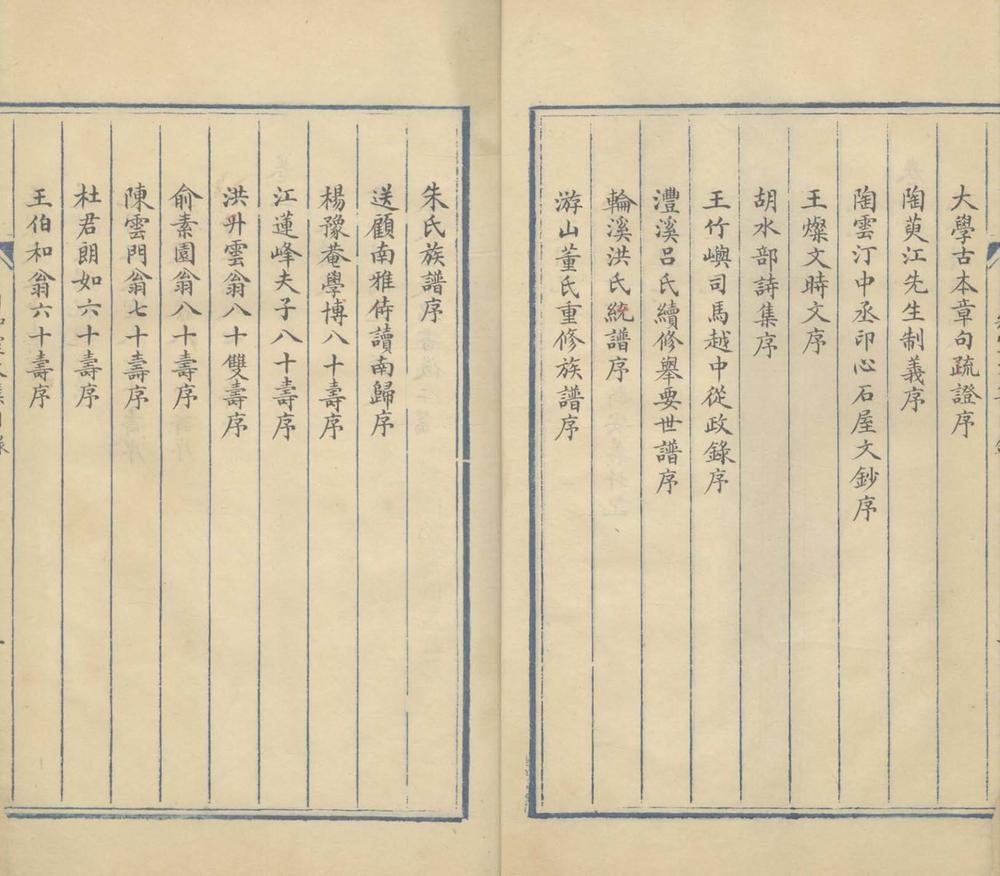 大學古本章句疏證序
陶萸江先生制義序
陶雲汀中丞印心石屋文鈔序
王燦文時文序
胡水部詩集序
王竹嶼司馬越中從政錄序
灃溪呂氏續修舉要世譜序
輪溪洪氏統譜序
游山董氏重修族譜序
朱氏族譜序
送顧南雅侍讀南歸序
楊豫菴學博八十壽序
江蓮峰夫子八十壽序
洪升雲翁八十雙壽序
俞素園翁八十壽序
陳雲門翁七十壽序
杜君朗如六十壽序
王伯和翁六十壽序